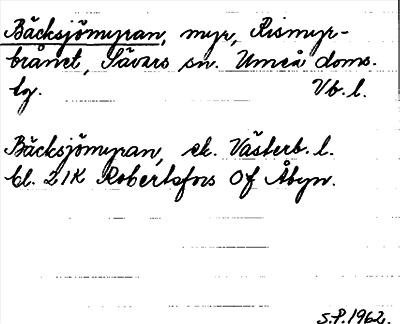 Bäcksjömyran, myr, Rismyr-
brånet, Sävars sn. Umeå doms.
lg. Vb. l.
Bäcksjömyran, ek. Västerb. l.
bl. 21K Robertsfors 0f Åbyn.
S.P. 1962.